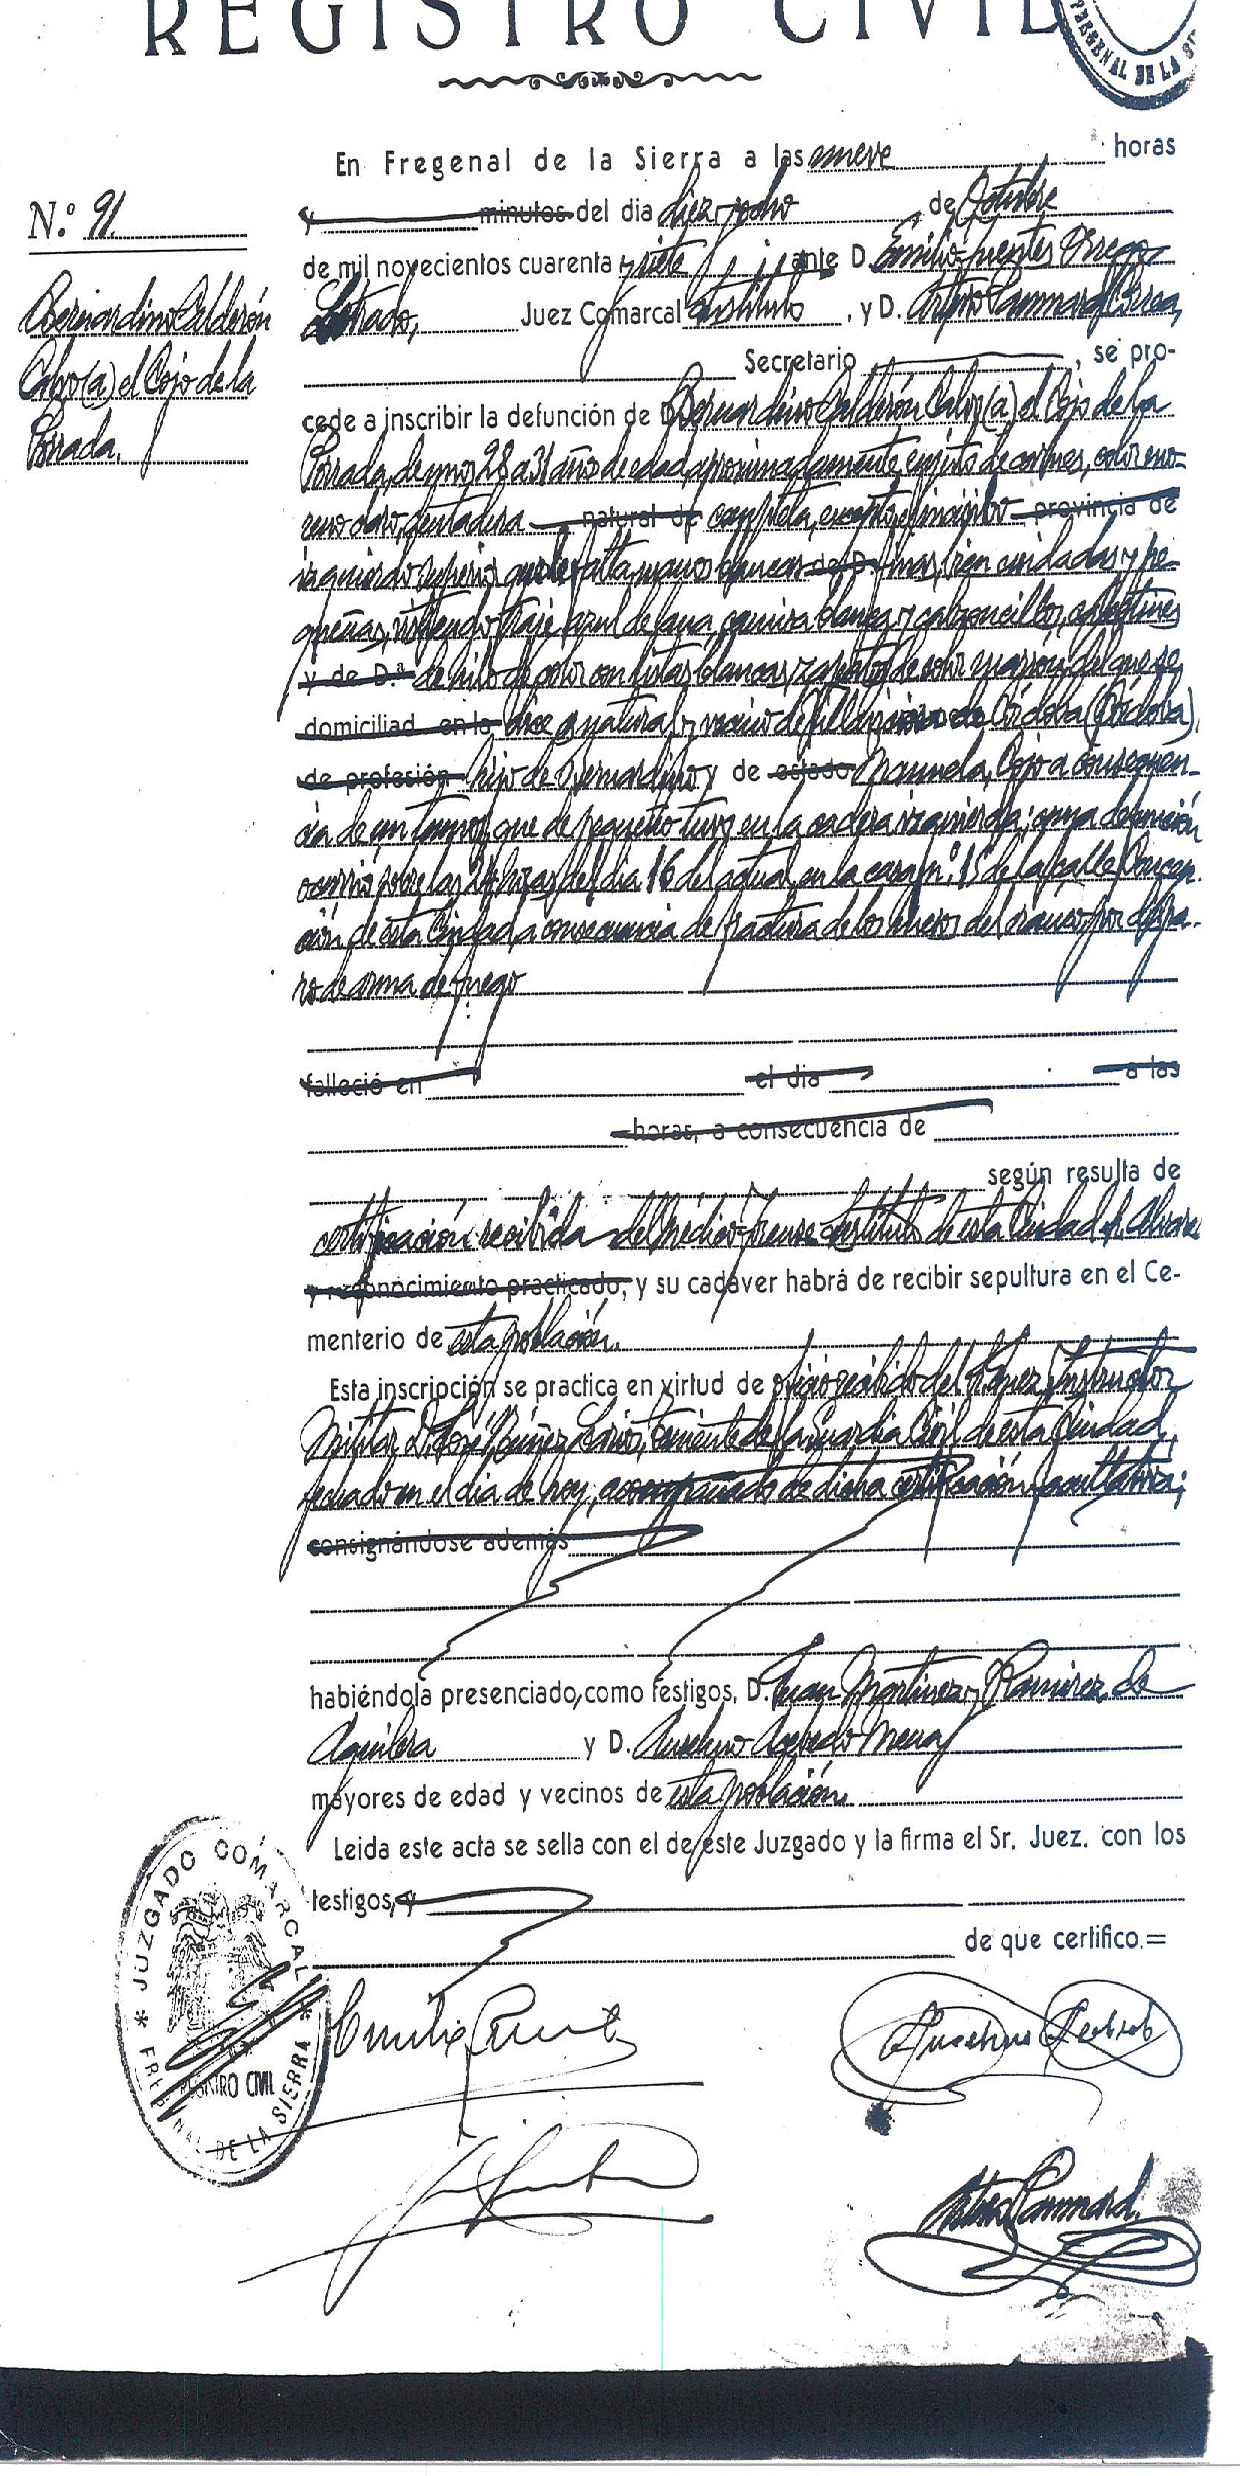 REGISTRO CIVIL
FREGENAL DE LA
En Fregenal de la Sierra a las nueve horas
N.º 91.
y minutos del dia diez y ocho de Octubre
de mil novecientos cuarenta y siete, ante D. Emilio Fuentes
Bernardino Calderón
Letrado, Juez Comarcal sustituto, y D. Arturo
Calvo (a) el Cojo de la
Secretario, se pro-
Porrada.
cede a inscribir la defunción de D. Bernardino Calderón Calvo (a) el Cojo de la
Porrada, de unos 28 a 31 años de edad aproximadamente, enjuto de carnes, color mo-
reno claro, dentadura natural de completa, excepto el incisivo provincia de
izquierdo superior que le falta, manos blancas de D. finas, bien cuidadas y pe-
queñas, vistiendo traje azul de lana, camisa blanca y calzoncillos, calcetines
y de D.ª de hilo de color con listas blancas, zapatos de color marrón, del que se
domiciliad en la dice es natural y vecino de Villaviciosa de Córdoba (Córdoba),
de profesión hijo de Bernardino y de estado Manuela, Cojo a consecuen-
cia de un tumor que de pequeño tuvo en la cadera izquierda; cuya defunción
ocurrió sobre las 24 horas del dia 16 del actual, en la casa n.º 15 de la calle Concep-
ción de esta Ciudad, a consecuencia de fractura de los huesos del cráneo por dispa-
ro de arma de fuego
falleció en el dia a las
horas, a consecuencia de
según resulta de
certificación recibida del Médico Forense sustituto de esta Ciudad
y reconocimiento practicado, y su cadáver habrá de recibir sepultura en el Ce-
menterio de esta población.
Esta inscripción se practica en virtud de oficio recibido del Sr. Juez Instructor
Militar D. José Teniente de la Guardia Civil de esta Ciudad,
fechado en el dia de hoy, acompañado de dicha certificación facultativa;
consignándose además
habiéndola presenciado, como testigos, D. Juan Martinez y Ramirez de
Aguilera y D. Anselmo Acevedo Mena
mayores de edad y vecinos de esta población.
Leida este acta se sella con el de este Juzgado y la firma el Sr. Juez. con los
testigos, y
de que certifico.=
JUZGADO COMARCAL
REGISTRO CIVIL
FREGENAL DE LA SIERRA